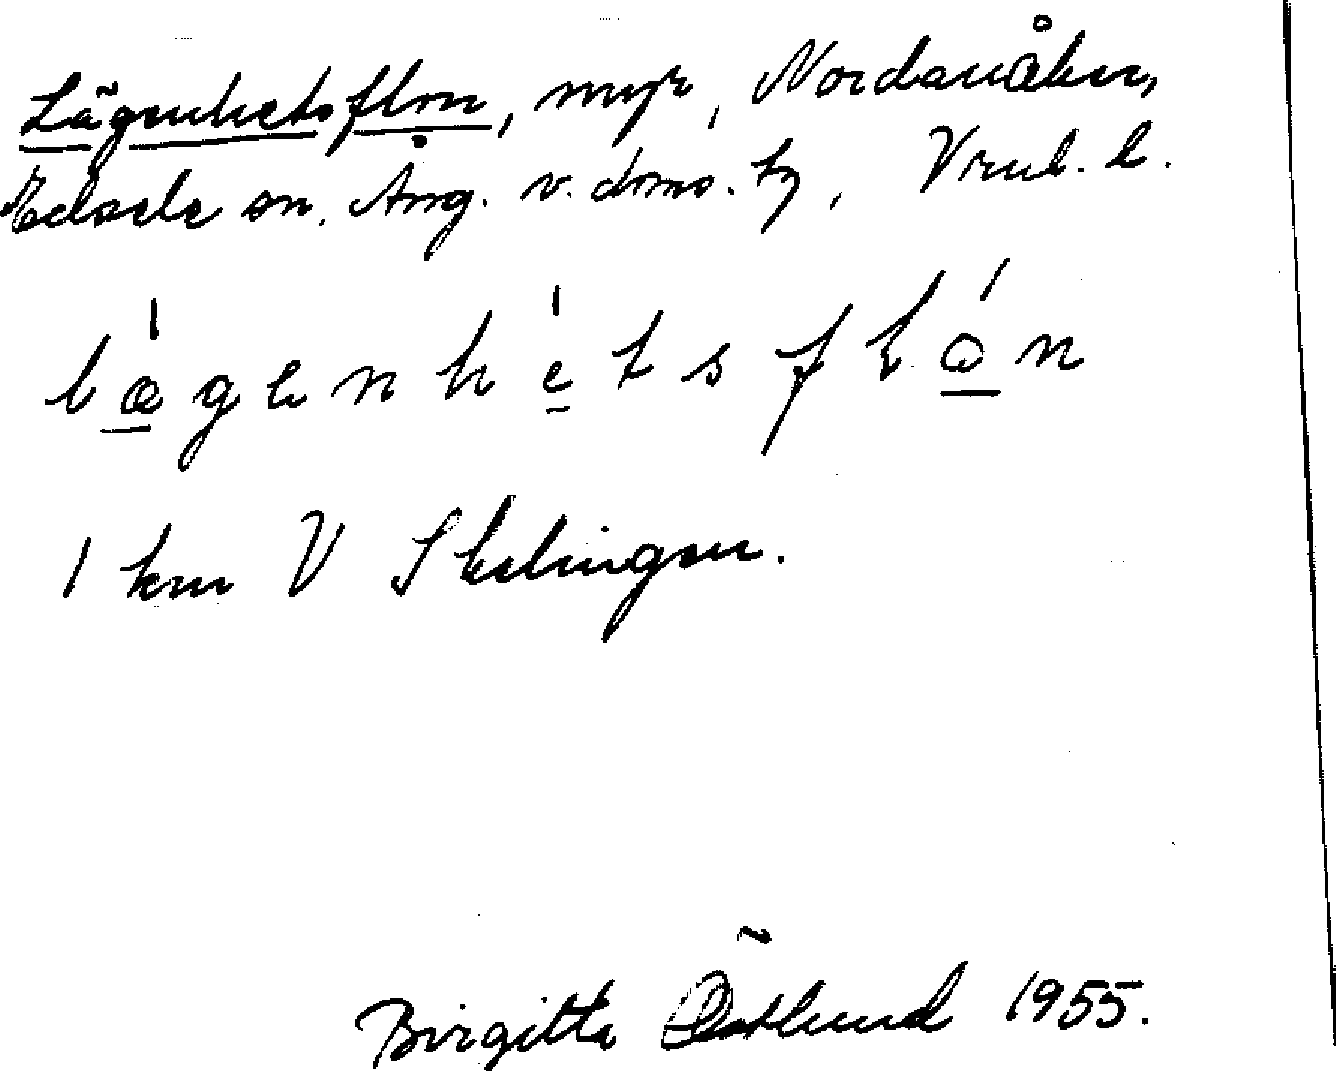 Lägenhetsflon, myr, Nordanåker,
Edsele sn. Ång. v. doms. tg, Vnl. l.
lægenhetsflån
1 km V Skelingen.
Birgitta Östlund 1955.